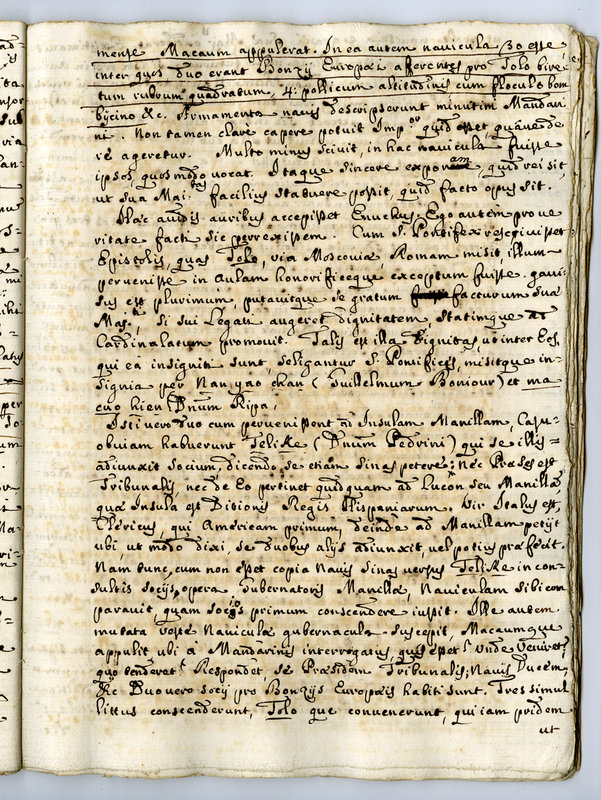 mense Macaum appulerat. In ea autem navicula 30 esse
inter quos duo erant Bonzij Europæi afferentes pro Tolo bire-
tum rubrum quadratum, 4. pollicum altitudinis cum floculo bom
bycino &c. Armamenta navis descripserunt minutim Mandari
ni. Non tamen clare capere potuit Imp.or quid esset, quave de
re ageretur. Multo minus scivit, in hac navicula fuisse
ipsos, quos modo vocat. Itaque sincere exponam, quid rei sit,
ut sua Mai.tas facilius statuere possit, quid facto opus sit.
Hac audis. auribus accepisset Eunuchus, Ego autem pro ve
ritate facti sic perrexissem. Cum S. Pontifex rescivisset
Epistolis, quas Tolo, via Moscoviæ, Romam misit, illum
pervenisse in aulam honorificeque exceptum fuisse. gavi-
sus est plurimum, putavitque se gratum facturum suæ
Maj.ti, si sui Legati augeret dignitatem, statimque ad
Cardinalatum promovit. Talis est illa dignitas, ut inter Ecl.
qui ea insigniti sunt, seligantur S. Pontifices, misitque in-
signia per Nan yao chan (Guillelmum Bonjour) et ma
cuo hien (Dñum Ripa.
Isti vero duo cum pervenissent ad Insulam Manillam, Casu
obviam habuerunt Telike (Dñum Pedrini) qui se illis
adiunxit socium, dicendo, se etiam Sinas petere; nec Præses est
Tribunalis, nec de Eo pertinet quidquam ad Lucon seu Manillã,
quæ Insula est Ditionis Regis Hispaniarum. Vir Italus est,
Clericus, qui Americam primum, deinde ad Manillam petijt
ubi, ut modo dixi, se duobus alijs adiunxit, vel potius præfecit.
Nam tunc, cum non esset copia Navis Sinas versus, Telike in con-
sultis socijs, opera Gubernatoris Manillæ, Naviculam sibi com
paravit, quam socios primum conscendere iussit. Ille autem
mutata veste naviculæ gubernacula suscepit, Macaumque
appulit ubi a Mandarinis interrogatus, quis esset? Unde veniret?
quo tenderet? Respondet se Præsidem Tribunalis, Navis Ducem,
&c Duo vero socij pro Bonzijs Europæis habiti sunt. Tres simul
littus conscenderunt, Tolo que convenerunt, qui iam pridem
ut